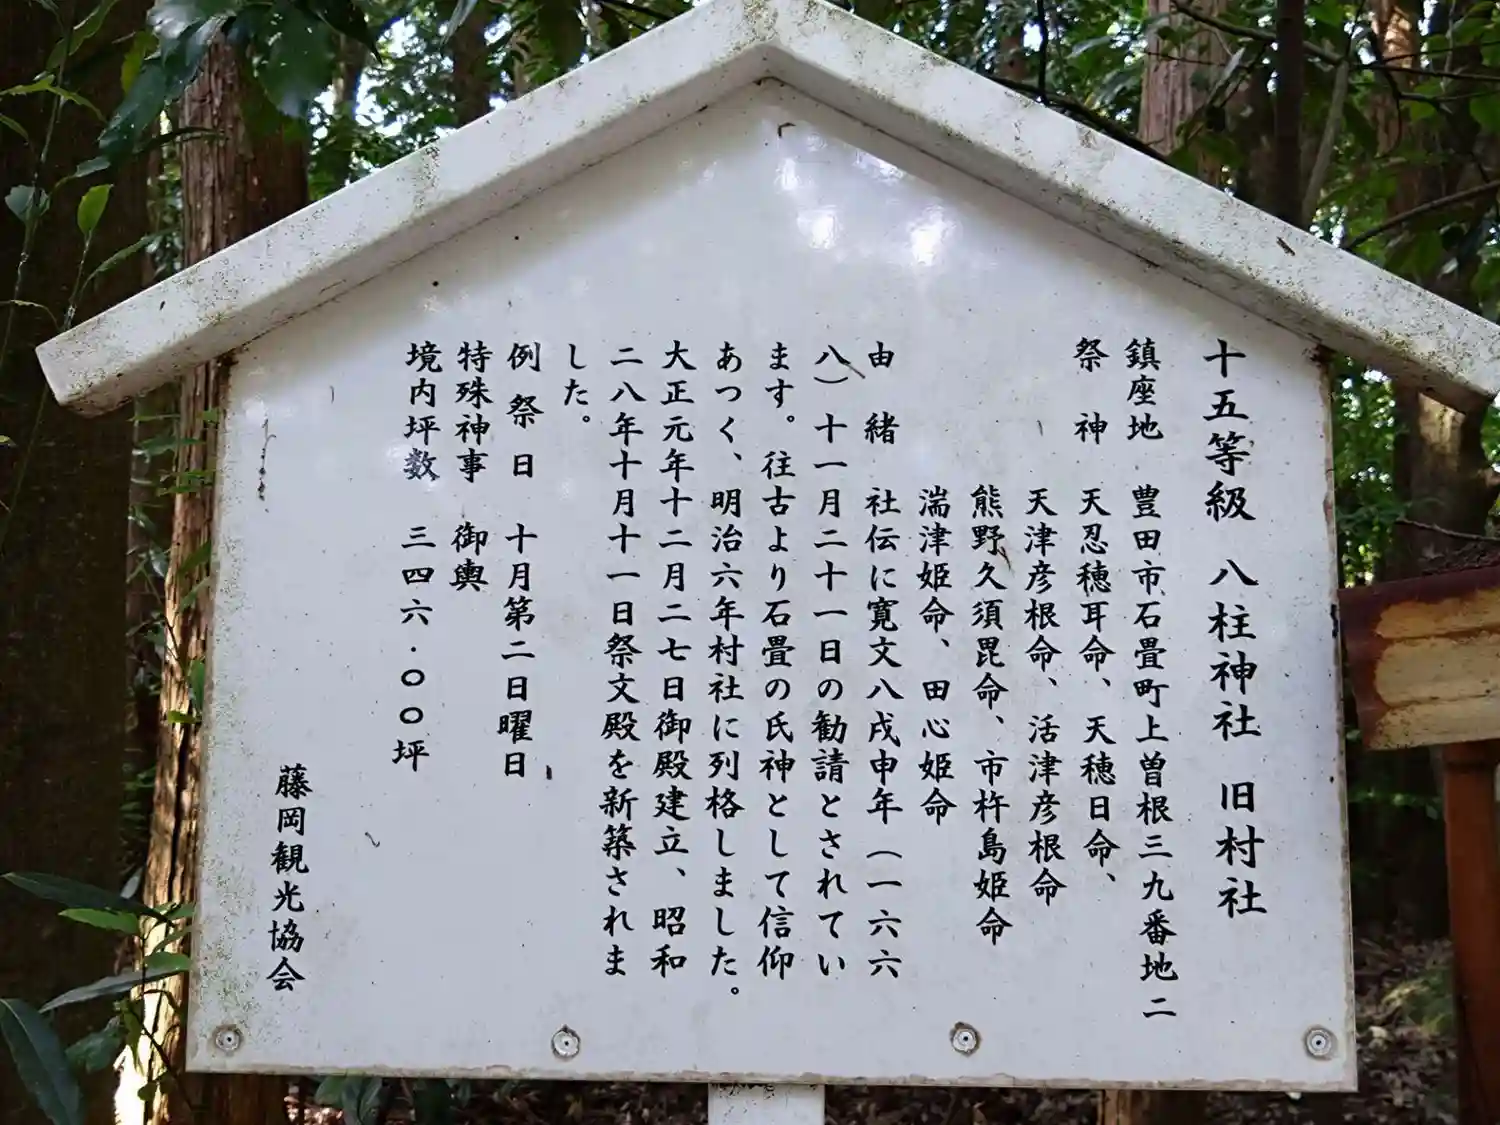 十五等級 八柱神社 旧村社
鎮座地 豊田市石畳町上曽根三九番地二
祭神 天忍穂耳命、天穂日命、
天津彦根命、活津彦根命
熊野久須毘命、市杵島姫命
湍津姫命、田心姫命
由緒 社伝に寛文八戌申年（一六六
八）十一月二十一日の勧請とされてい
ます。往古より石畳の氏神として信仰
あつく、明治六年村社に列格しました。
大正元年十二月二七日御殿建立、昭和
二八年十月十一日祭文殿を新築されま
した。
例祭日 十月第二日曜日
特殊神事 御輿
境内坪数 三四六・〇〇坪
藤岡観光協会